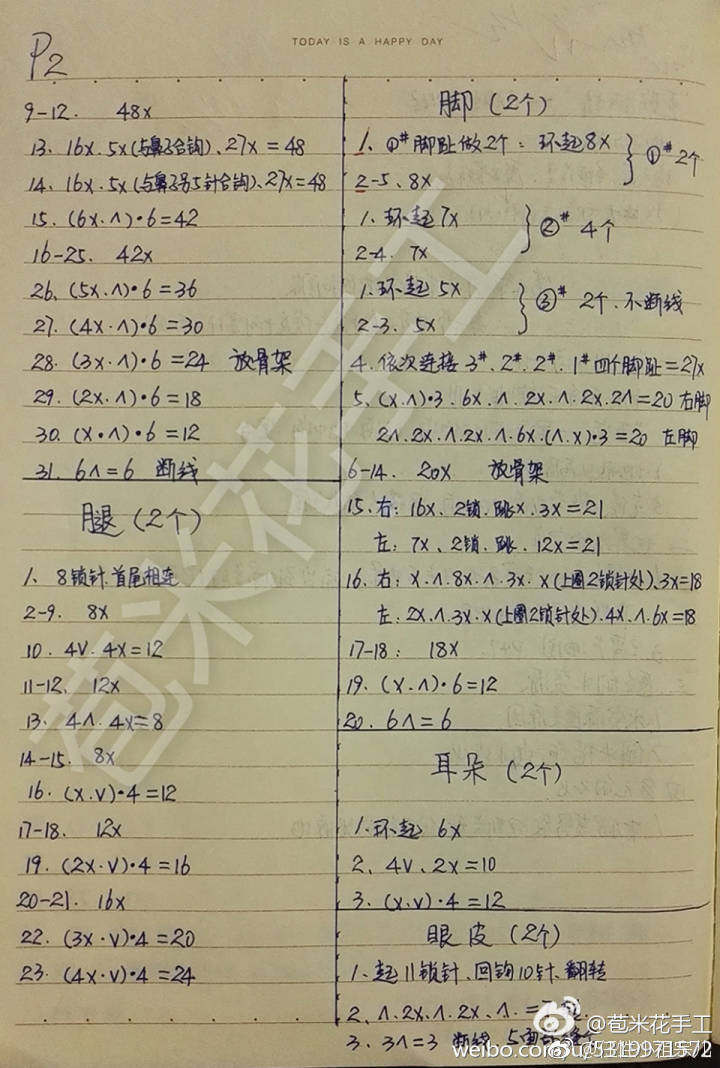 TODAY IS A HAPPY DAY
P2
9-12. 48x
13. 16x. 5x(与鼻子合钩)、27x=48
14. 16x. 5x(与鼻子另5针合钩)、27x=48
15. (6x.∧)•6=42
16-25. 42x
26. (5x.∧)•6=36
27. (4x.∧)•6=30
28. (3x.∧)•6=24 放骨架
29. (2x.∧)•6=18
30. (x.∧)•6=12
31. 6∧=6 断线
腿(2个)
1. 8锁针.首尾相连
2-9. 8x
10. 4V. 4x=12
11-12. 12x
13. 4∧. 4x=8
14-15. 8x
16. (x.v)•4=12
17-18. 12x
19. (2x.v)•4=16
20-21. 16x
22. (3x.v)•4=20
23. (4x.v)•4=24
脚(2个)
1. ①#脚趾做2个: 环起8x } ①# 2个
2-5. 8x
1. 环起7x } ②# 4个
2-4. 7x
1. 环起5x } ③# 2个.不断线
2-3. 5x
4. 依次连接3#. 2#. 2#. 1#四个脚趾=27x
5. (x.∧)•3. 6x. ∧. 2x. ∧. 2x. 2∧=20 右脚
2∧. 2x. ∧. 2x. ∧. 6x. (∧.x)•3=20 左脚
6-14. 20x 放骨架
15. 右: 16x. 2锁. 跳x. 3x=21
左: 7x. 2锁. 跳. 12x=21
16. 右: x.∧.8x.∧.3x. x(上圈2锁针处)、3x=18
左: 2x.∧.3x.x(上圈2锁针处).4x.∧.6x=18
17-18: 18x
19. (x.∧)•6=12
20. 6∧=6
耳朵(2个)
1. 环起 6x
2. 4V. 2x=10
3. (x.v)•4=12
眼皮(2个)
1. 起11锁针、回钩10针、翻转
2. ∧.2x.∧.2x.∧.=
3. 3∧=3 断线
荀米花手工
@荀米花手工
weibo.com/u/5319971572